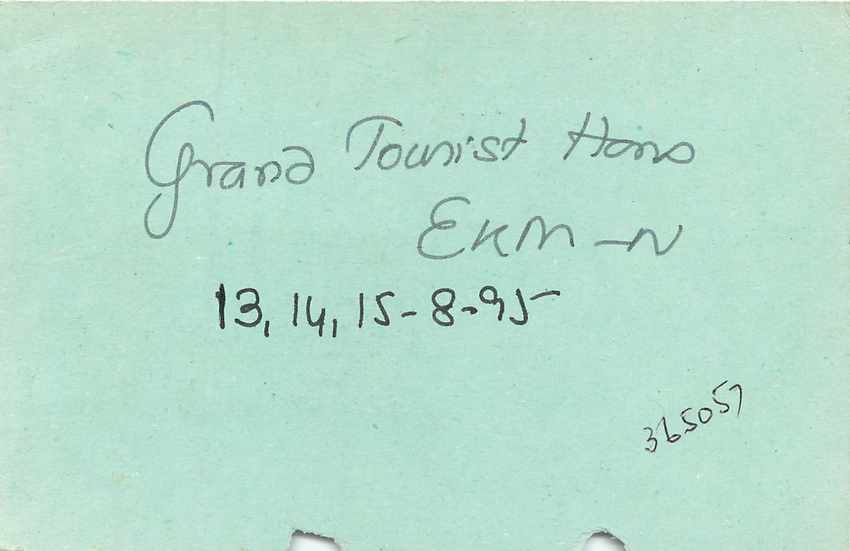 Grand Tourist Homs
EKM-N
13, 14, 15-8-95
365057